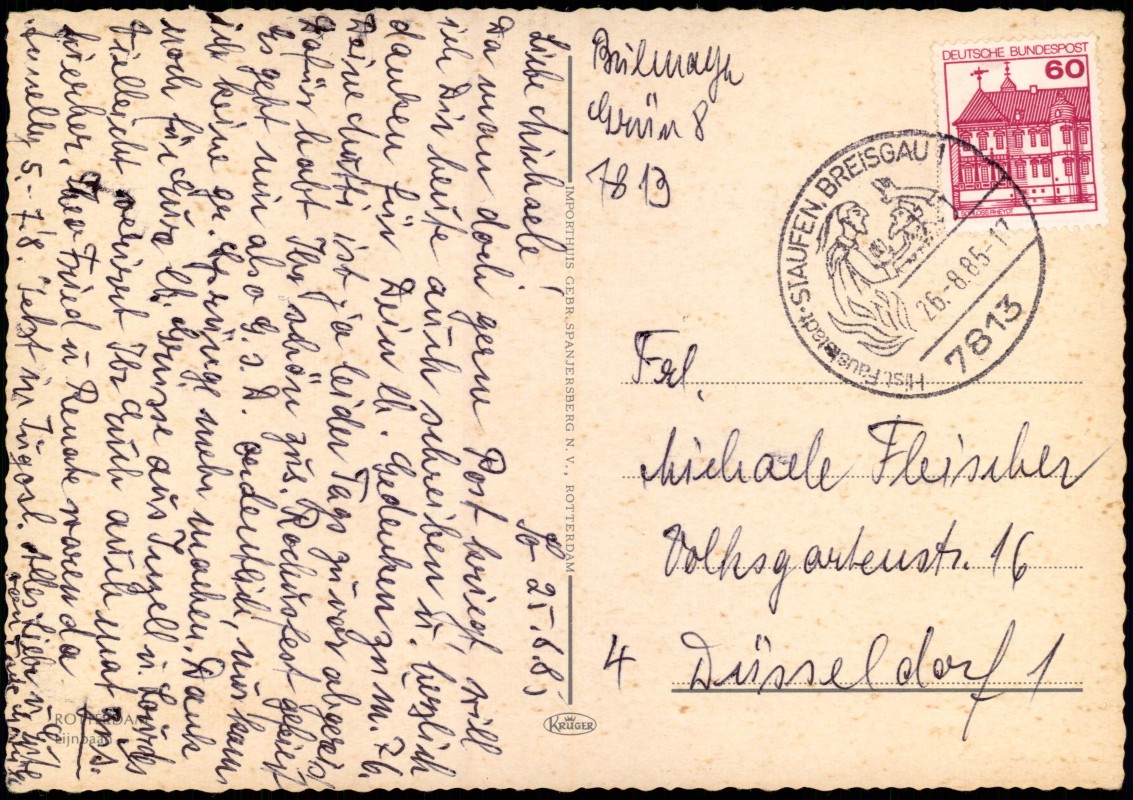 So 25.8.85
Liebe Michaele!
Da man doch gern Post kriegt, will
ich Dir heute auch schreiben u. herzlich
danken für Dein lb. Gedenken zum 76.
Deine Dotti ist ja leider Tags zuvor abgereist
Dafür habt Ihr schön zus. Rochusfest gefeiert
Es geht mir also G. s. D. ordentlich, nur kann
ich keine gr. Sprünge mehr machen. Dank
noch für Eure lb. Grüsse aus Tinzell u. Lourdes
Vielleicht verirrt Ihr Euch auch mal
hierher. Theo Fried u Renate waren da
5.-7.8. Jetzt in Jugosl. Alles Liebe u. Gute
Grün 8
7813
Frl.
Michaele Fleischer
Volksgartenstr. 16
4 Düsseldorf 1
DEUTSCHE BUNDESPOST
60
SCHLOSS RHEYDT
STAUFEN, BREISGAU 1
Hist. Fauststadt
26.-8.85-17
7813
IMPORTHUIS GEBR. SPANJERSBERG N.V., ROTTERDAM
KRÜGER
ROTTERDAM
Lijnbaan